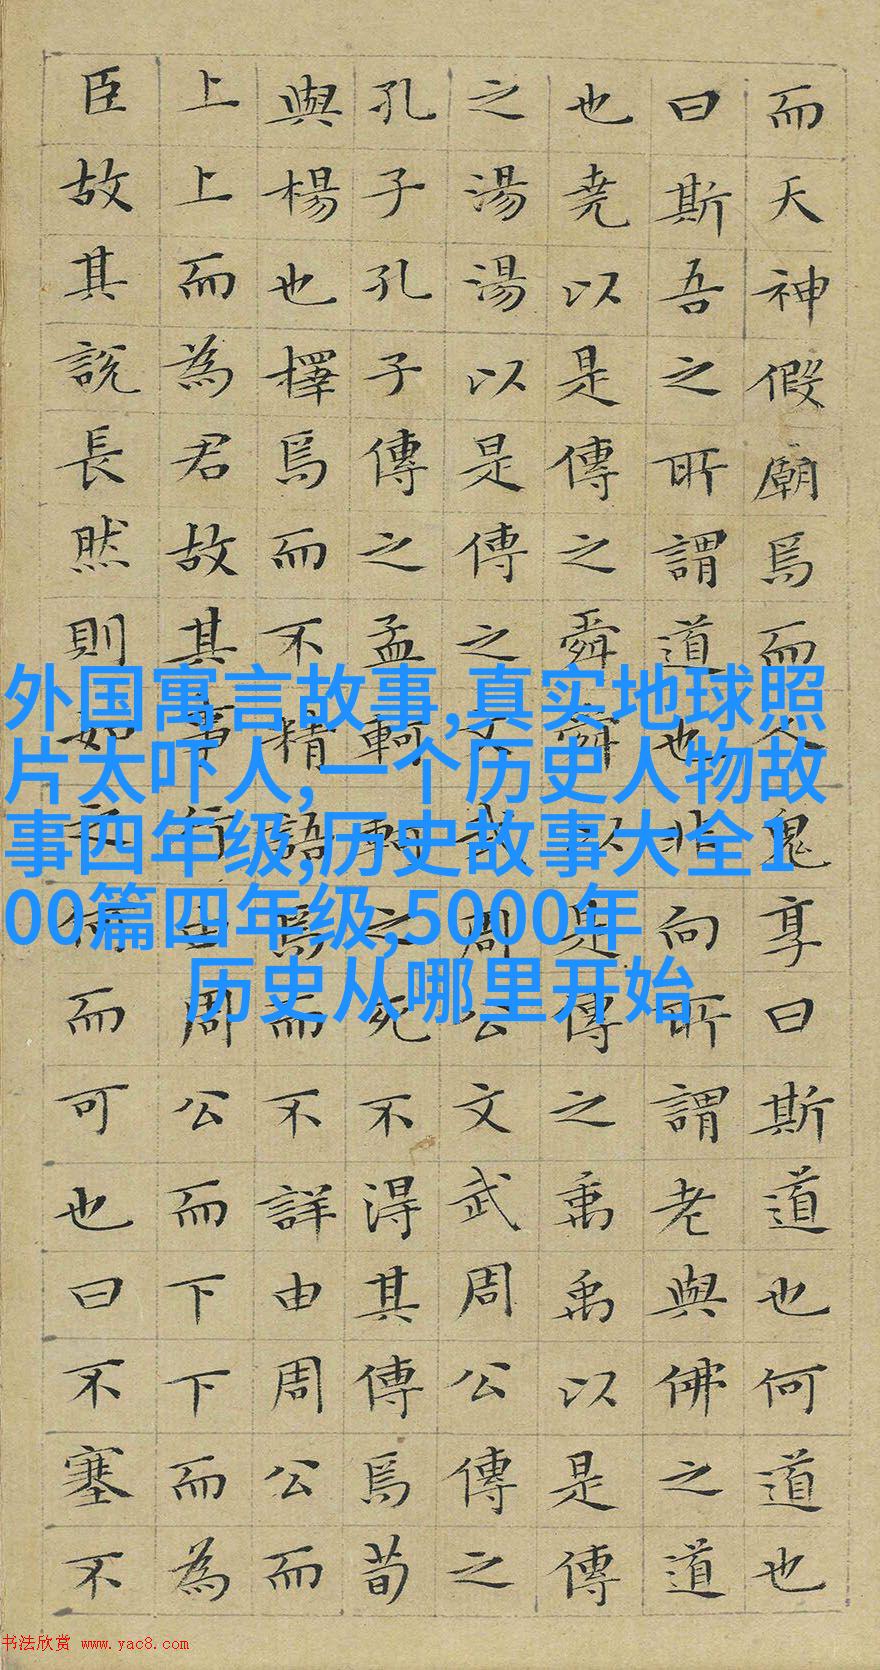 而天神假廟焉而人鬼享曰斯道也何道也
曰斯吾之所謂道也非向所謂老與佛之道
也堯以是傳之舜舜以是傳之禹禹以是傳
之湯湯以是傳之文武周公文武周公傳之
孔子孔子傳之孟軻軻之死不得其傳焉荀
與楊也擇焉而不精語焉而不詳由周公而
上上而為君故其事行由周公而下下而為
臣故其說長然則如之何而可也曰不塞不
外国寓言故事,真实地球照
片太吓人,一个历史人物故
事四年级,历史故事大全1
00篇四年级,5000年
历史从哪里开始
书法欣赏 www.yac8.com